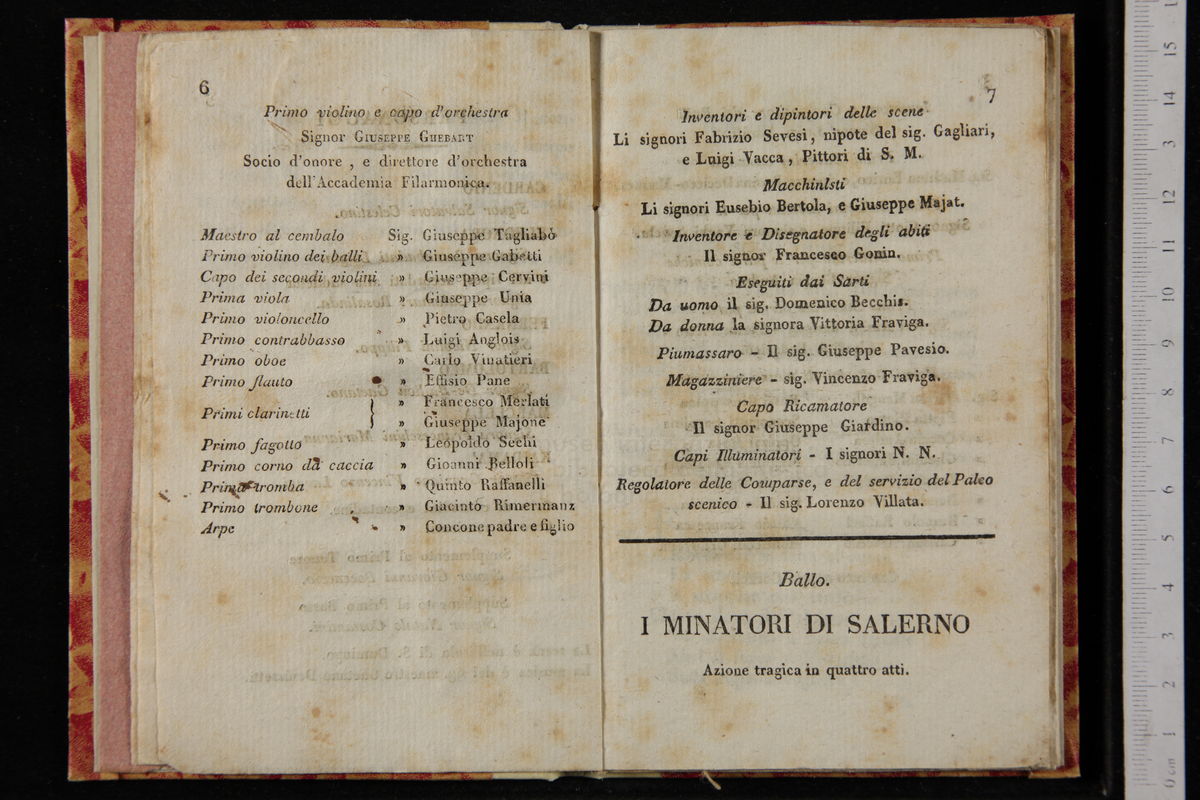 6
Primo violino e capo d'orchestra
Signor Giuseppe Ghebart
Socio d'onore , e direttore d'orchestra
dell'Accademia Filarmonica.
Maestro al cembalo Sig. Giuseppe Tagliabò
Primo violino dei balli » Giuseppe Gabetti
Capo dei secondi violini » Giuseppe Cervini
Prima viola » Giuseppe Unia
Primo violoncello » Pietro Casela
Primo contrabbasso » Luigi Anglois
Primo oboe » Carlo Vinatieri
Primo flauto » Effisio Pane
Primi clarinetti } » Francesco Merlati
» Giuseppe Majone
Primo fagotto » Leopoldo Sechi
Primo corno da caccia » Gioanni Belloli
Prima tromba » Quinto Raffanelli
Primo trombone » Giacinto Rimermanz
Arpe » Concone padre e figlio
7
Inventori e dipintori delle scene
Li signori Fabrizio Sevesi, nipote del sig. Gagliari,
e Luigi Vacca, Pittori di S. M.
Macchinlsti
Li signori Eusebio Bertola, e Giuseppe Majat.
Inventore e Disegnatore degli abiti
Il signor Francesco Gonin.
Eseguiti dai Sarti
Da uomo il sig. Domenico Becchis.
Da donna la signora Vittoria Fraviga.
Piumassaro - Il sig. Giuseppe Pavesio.
Magazziniere - sig. Vincenzo Fraviga.
Capo Ricamatore
Il signor Giuseppe Giardino.
Capi Illuminatori - I signori N. N.
Regolatore delle Comparse, e del servizio del Palco
scenico - Il sig. Lorenzo Villata.
Ballo.
I MINATORI DI SALERNO
Azione tragica in quattro atti.